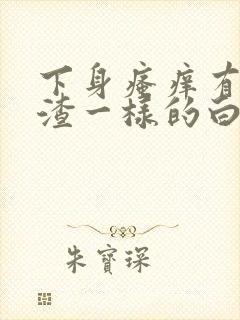 下身瘙痒有
渣一样的白
朱寳琛